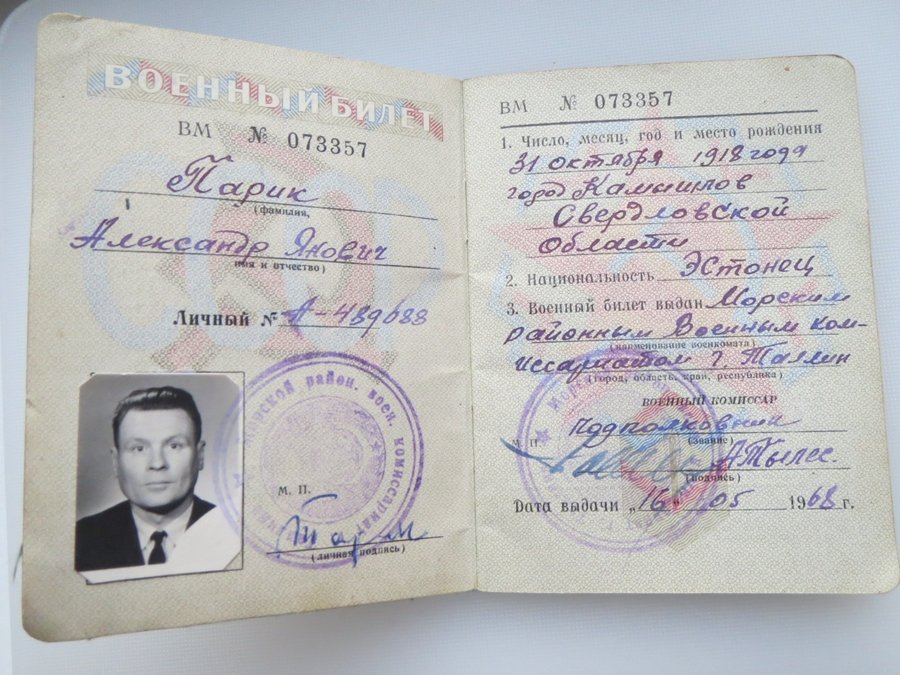 ВОЕННЫЙ БИЛЕТ
ВМ № 073357
Парик
(фамилия,
Александр Янович
имя и отчество)
Личный № А-489688
М. П.
(личная подпись)
ВМ № 073357
1. Число, месяц, год и место рождения
31 октября 1918 года
город Камышлов
Свердловской
области
2. Национальность Эстонец
3. Военный билет выдан Морским
районным Военным ком-
(наименование военкомата)
иссариатом г. Таллин
(город, область, край, республика)
ВОЕННЫЙ КОМИССАР
подполковник
(звание)
М. П.
А Тылес.
(подпись)
Дата выдачи „16" 05 1968 г.